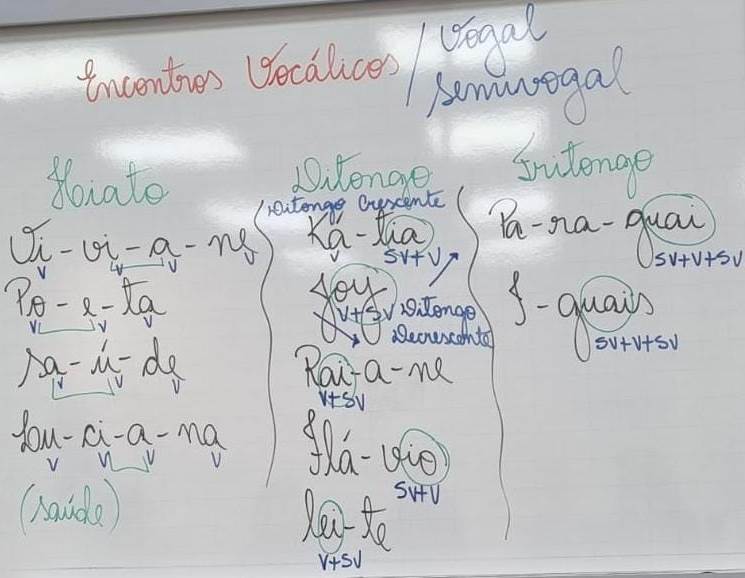 Encontros Vocálicos / Vogal
semivogal
Hiato
Vi - vi - a - ne
V V V
Po - e - ta
V V V
Sa - ú - de
V V V
Lu - ci - a - na
V V V V
(saúde)
Ditongo
Ditongo Crescente
Ká - tia
V SV+V
Joy
V+SV Ditongo
Decrescente
Rai - a - ne
V+SV
Flá - vio
SV+V
lei - te
V+SV
Tritongo
Pa - ra - guai
SV+V+SV
I - guais
SV+V+SV